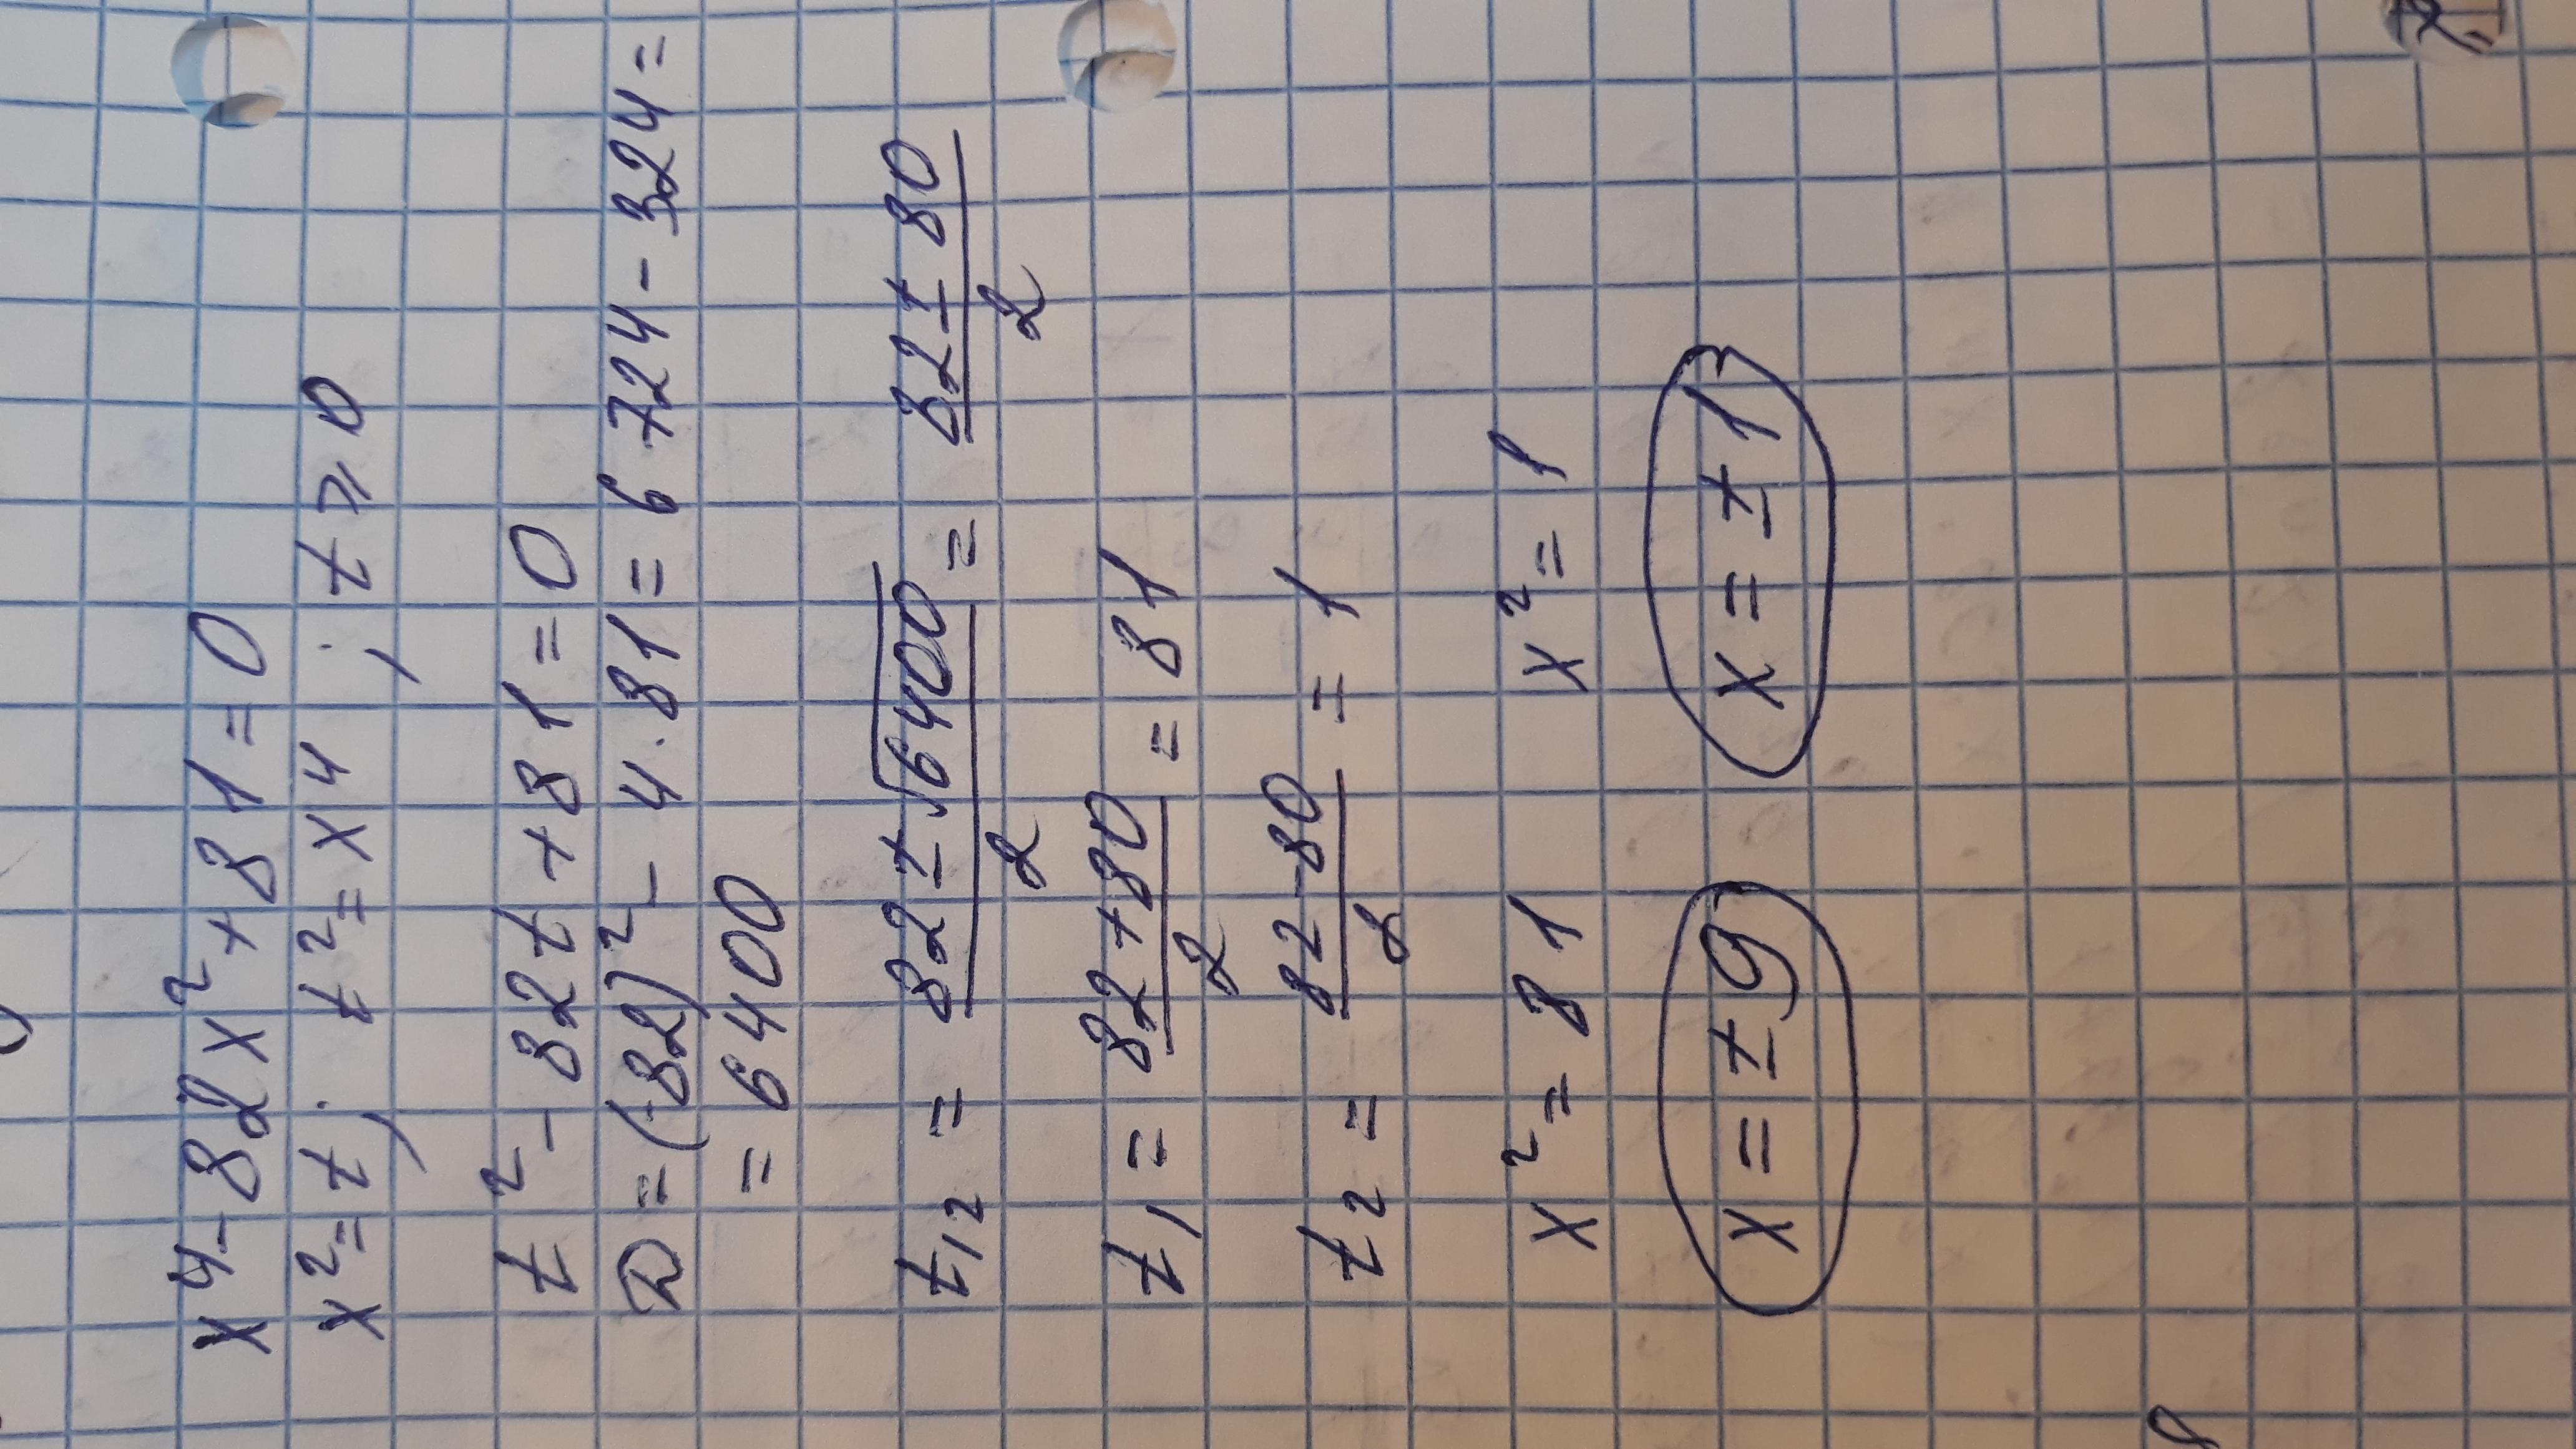 x⁴ - 82x² + 81 = 0
x² = t; t² = x⁴; t ⩾ 0
t² - 82t + 81 = 0
D = (-82)² - 4 · 81 = 6724 - 324 =
= 6400
t₁,₂ = (82 ± √6400)/2 = (82 ± 80)/2
t₁ = (82 + 80)/2 = 81
t₂ = (82 - 80)/2 = 1
x² = 81 x² = 1
x = ± 9 x = ± 1